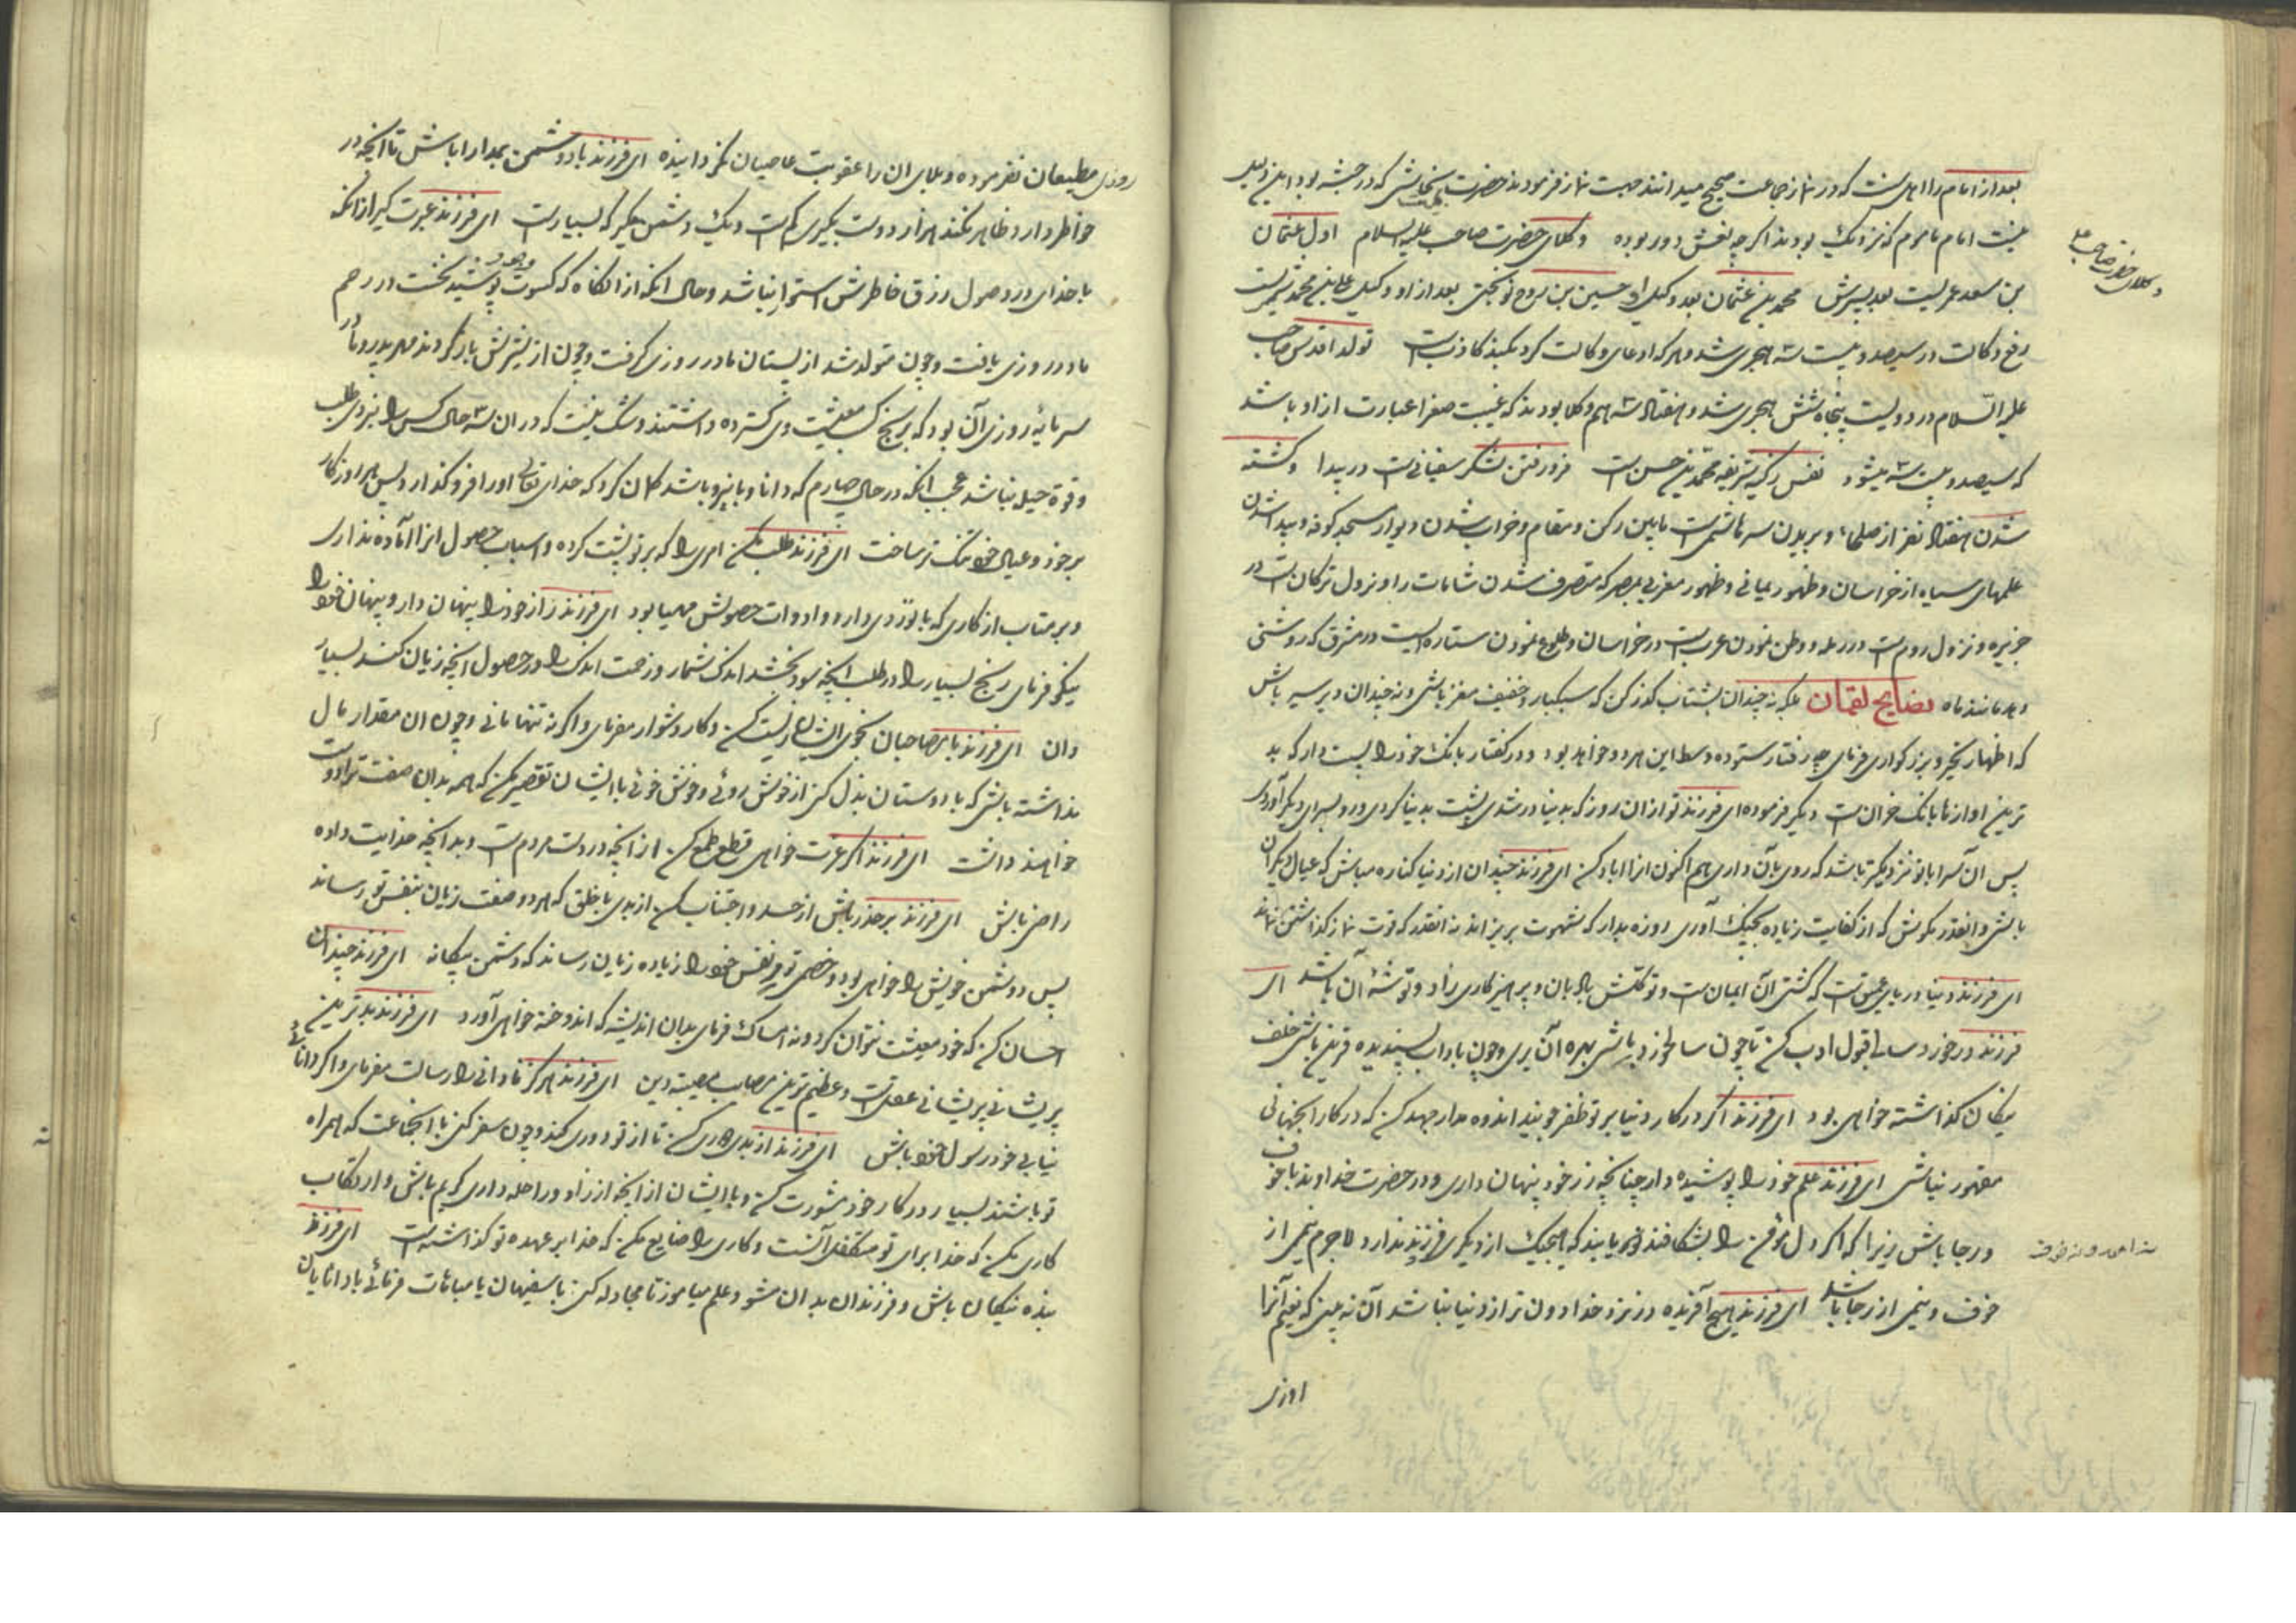 بعد از امام را اهل سنت که در نماز جماعت صحیح میدانند جهت نماز فرمودند حضرت بنجاشی که در حبشه بود این دلیل
نیست امام ماموم که نزدیک بودند اگر چه نعش دور بوده وکلای حضرت صاحب علیه السلام اول عثمان
وکلای حضرت صاحب ع
بن سعد عمریست بعد پسرش محمد بن عثمان بعد وکیل او حسین بن روح نوبختی بعد از او وکیل علی بن محمد سمریست
رفع وکالت در سیصد و بیست نه هجری شد و هر که ادعای وکالت کرد بکند کاذبست تولد اقدس صاحب
علیه السلام در دویست پنجاه شش هجری شد و هفتاد سه هم وکلا بودند که غیبت صغرا عبارت از او باشد
که سیصد و بیست نه میشود نفس زکیه شریفه محمد بن حسن است فرو رفتن لشکر سفیانی است در بیدا وکشته
شدن هفتاد نفر از صلحاء و بریدن سر هاشمی است مابین رکن و مقام و خراب شدن دیوار مسجد کوفه و پیدا شدن
علمهای سیاه از خراسان و ظهور یمانی و ظهور مغربی بمصر که متصرف شدن شامات را و نزول ترکان است در
جزیره و نزول روم است در رمله و وطن نمودن عربست در خراسان و طلوع نمودن ستاره ایست در مشرق که روشنی
دهد مانند ماه نصایح لقمان بلکه نه چندان بشتاب گذر کن که سبکبار و خفیف مغز باشی و نه چندان دیر سیر باش
که اظهار تجبر و بزرگواری فرمای چه رفتار ستوده وسط این هر دو خواهد بود و در گفتار بانک خود را پست دار که بد
ترین اوازها بانک خران است دیگر فرموده ای فرزند تو از ان روز که بدنیا در شدی پشت بدنیا کردی و رو بسرای دیگر آوردی
پس آن سرا با تو نزدیکتر باشد که روی بآن داری هم اکنون انرا اباد کن ای فرزند چندان از دنیا کناره مباش که عیال دیگران
باشی و انقدر مکوش که از کفایت زیاده بچنگ آوری روزه بدار که شهوت بریزاند نه انقدر که قوت نماز کذاشتن نماند
ای فرزند دنیا دریای عمیق است که کشتی آن ایمان است و توکلش بادبان و پرهیزکاری زاد و توشه آن باشد ای
فرزند در خورد سالی قبول ادب کن تا چون سالخورد باشی بهره آن بری و چون باداب پسندیده قرین باشی خلف
نیکان کذاشته خواهی بود ای فرزند اگر در کار دنیا بر تو ظفر جویند اندوه مدار جهد کن که در کار انجهانی
مقهور نباشی ای فرزند علم خود را پوشیده دار چنانچه زر خود پنهان داری و در حضرت خداوند باخوف
و رجا باش زیرا که اگر دل مؤمن را بشکافند دو نور یابند که هیچیک از دیگری فزونی ندارد لاجرم نیمی از
خوف و نیمی از رجا باشد ای فرزند هیچ آفریده در نزد خدا دون تر از دنیا نباشد آن نه بینی که نعیم آنرا
روزی مطیعان نفرموده و بلای ان را عقوبت عاصیان نگردانیده ای فرزند با دوشمن بمدارا باش تا انچه در
خواطر دارد ظاهر نکند هزار دوست بگیری کم است و یک دشمن مگیر که بسیار است ای فرزند عبرت گیر از انکه
با خدای در وصول رزق خاطرش استوار نباشد و حال انکه از انگاه که کسوت وجود پوشید نخست در رحم
مادر روزی یافت و چون متولد شد از پستان مادر روزی گرفت و چون از شیرش باز کردند مهر پدر و مادر
سرمایه روزی آن بود که برنج کسب معیشت وی گسترده داشتند و شک نیست که در ان سه حال کس را نیروی طلب
و قوة حیل نباشد عجب انکه در حال چهارم که دانا و با نیرو باشد گمان کرد که خدای تعالی او را فرو گذارد پس روزگار
بر خود و عیال خود تنگ تر ساخت ای فرزند طلب مکن امری را که بر تو پشت کرده و اسباب حصول انرا آماده نداری
و بر متاب از کاری که با تو روی دارد و ادوات حصولش مهیا بود ای فرزند راز خود را پنهان دار و پنهان خود را
نیکو فرمای رنج بسیار را در طلب انچه سود بخشد اندک شمار و زحمت اندک را در حصول انچه زیان کند بسیار
دان ای فرزند با مصاحبان بخوی ایشان زیست کن و کار دشوار مفرمای و اگر نه تنها مانی و چون ان مقدار مال
نداشته باشی که با دوستان بذل کنی از خوش روئی و خوش خوئی با ایشان تقصیر مکن که همه بدان صفت ترا دوست
خواهند داشت ای فرزند اگر عزت خواهی قطع طمع کن از انچه در دست مردم است و بدانچه خدایت داده
راضی باش ای فرزند بر حذر باش از حسد و اجتناب کن از بدی با خلق که هر دو صفت زیان بنفس تو رساند
پس دوشمن خویش را خواهی بود و خصمی تو بر نفس خود زیاده زیان رساند که دشمن بیکانه ای فرزند چندان
احسان کن که خود معیشت نتوان کرد و نه امساک فرمای بدان اندیشه که اندوخته خواهی آورد ای فرزند بدترین
پریشانی پریشانی عقلست و عظیم ترین مصایب مصیبة دین ای فرزند هرگز نادانی را رسالت مفرمای و اگر دانائی
نیابی خود رسول خود باش ای فرزند از بدی دوری کن تا از تو دوری کند و چون سفر کنی با انجماعت که همراه
تو باشند بسیار در کار خود مشورت کن و با ایشان از انچه از زاد و راحله داری کریم باش و ارتکاب
کاری مکن که خدا برای تو متکفل آنست و کاری را ضایع مکن که خدا بر عهده تو کذاشته است ای فرزند
بنده نیکان باش و فرزندان بدان مشو و علم میاموز تا مجادله کنی با سفیهان یا مباهات فرمائی با دانایان